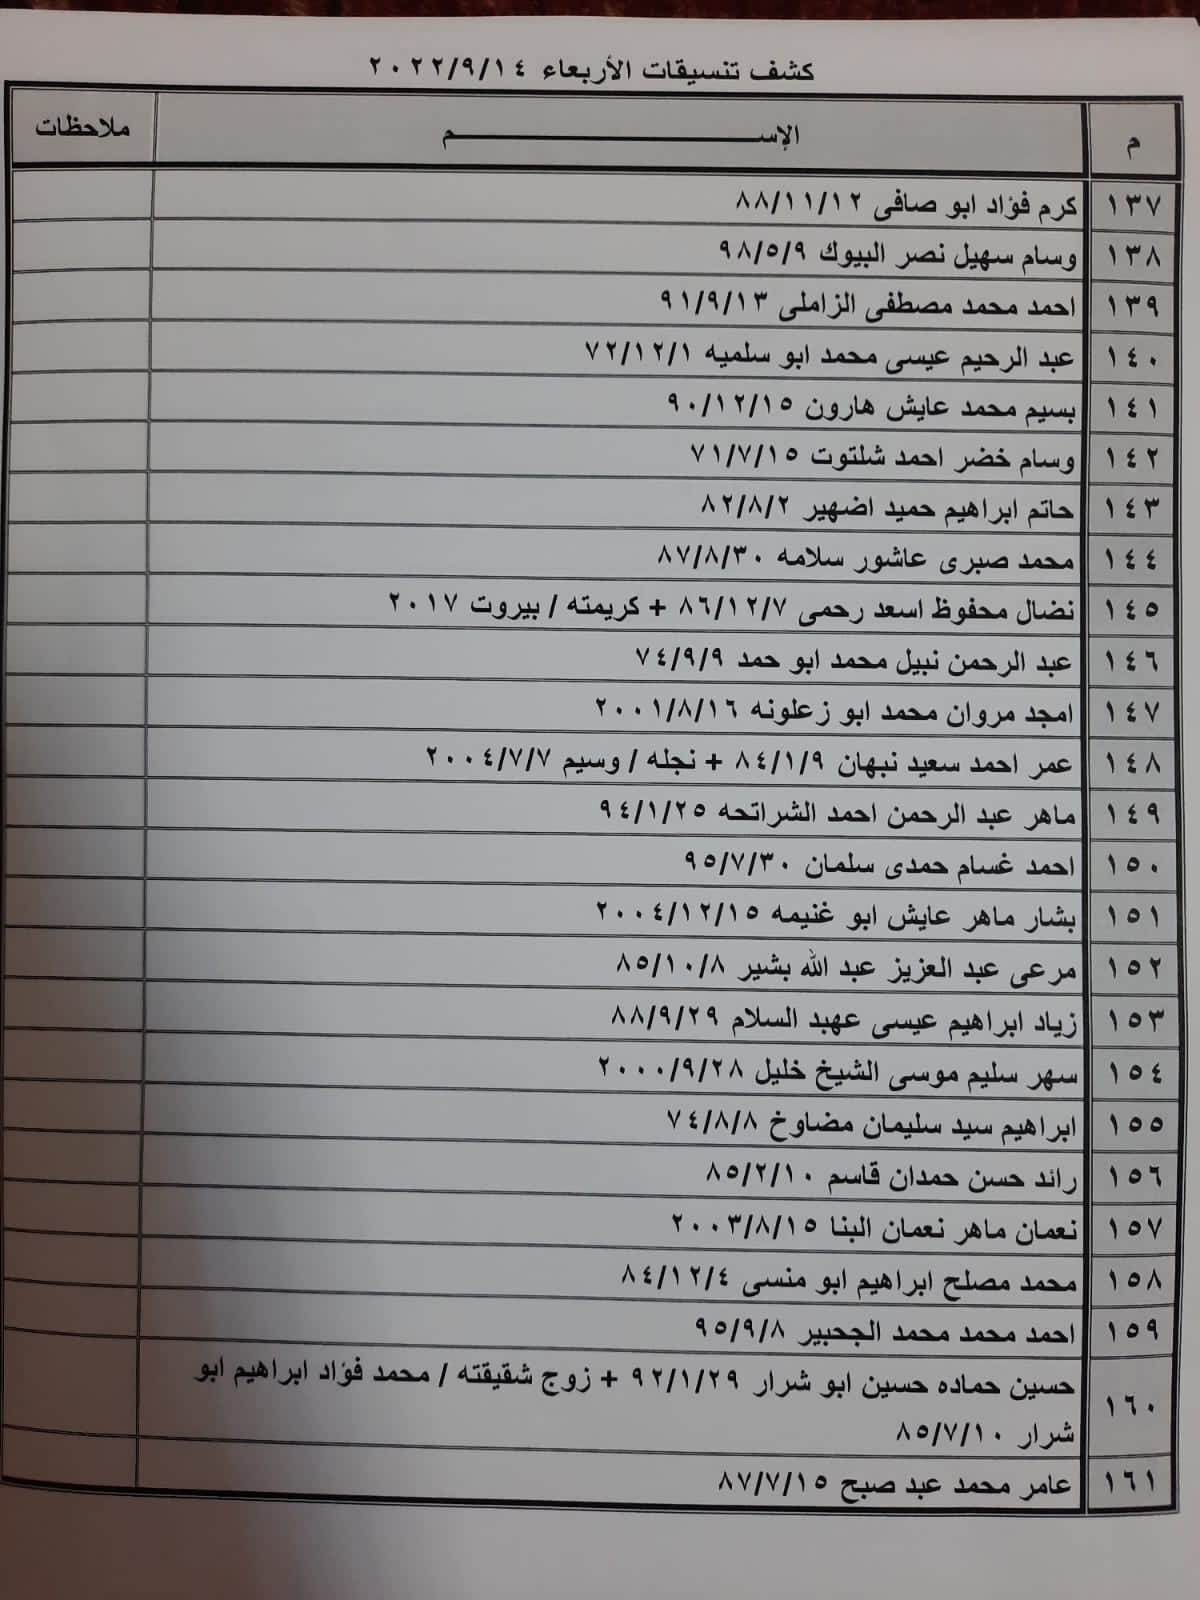 كشف تنسيقات الأربعاء ٢٠٢٢/٩/١٤
م الإســـــــــم ملاحظات
١٣٧ كرم فؤاد ابو صافى ٨٨/١١/١٢
١٣٨ وسام سهيل نصر البيوك ٩٨/٥/٩
١٣٩ احمد محمد مصطفى الزاملى ٩١/٩/١٣
١٤٠ عبد الرحيم عيسى محمد ابو سلميه ٧٢/١٢/١
١٤١ بسيم محمد عايش هارون ٩٠/١٢/١٥
١٤٢ وسام خضر احمد شلتوت ٧١/٧/١٥
١٤٣ حاتم ابراهيم حميد اضهير ٨٢/٨/٢
١٤٤ محمد صبرى عاشور سلامه ٨٧/٨/٣٠
١٤٥ نضال محفوظ اسعد رحمى ٨٦/١٢/٧ + كريمته / بيروت ٢٠١٧
١٤٦ عبد الرحمن نبيل محمد ابو حمد ٧٤/٩/٩
١٤٧ امجد مروان محمد ابو زعلونه ٢٠٠١/٨/١٦
١٤٨ عمر احمد سعيد نبهان ٨٤/١/٩ + نجله / وسيم ٢٠٠٤/٧/٧
١٤٩ ماهر عبد الرحمن احمد الشراتحه ٩٤/١/٢٥
١٥٠ احمد غسام حمدى سلمان ٩٥/٧/٣٠
١٥١ بشار ماهر عايش ابو غنيمه ٢٠٠٤/١٢/١٥
١٥٢ مرعى عبد العزيز عبد الله بشير ٨٥/١٠/٨
١٥٣ زياد ابراهيم عيسى عهبد السلام ٨٨/٩/٢٩
١٥٤ سهر سليم موسى الشيخ خليل ٢٠٠٠/٩/٢٨
١٥٥ ابراهيم سيد سليمان مضاوخ ٧٤/٨/٨
١٥٦ رائد حسن حمدان قاسم ٨٥/٢/١٠
١٥٧ نعمان ماهر نعمان البنا ٢٠٠٣/٨/١٥
١٥٨ محمد مصلح ابراهيم ابو منسى ٨٤/١٢/٤
١٥٩ احمد محمد محمد الجحبير ٩٥/٩/٨
١٦٠ حسين حماده حسين ابو شرار ٩٢/١/٢٩ + زوج شقيقته / محمد فؤاد ابراهيم ابو
شرار ٨٥/٧/١٠
١٦١ عامر محمد عبد صبح ٨٧/٧/١٥